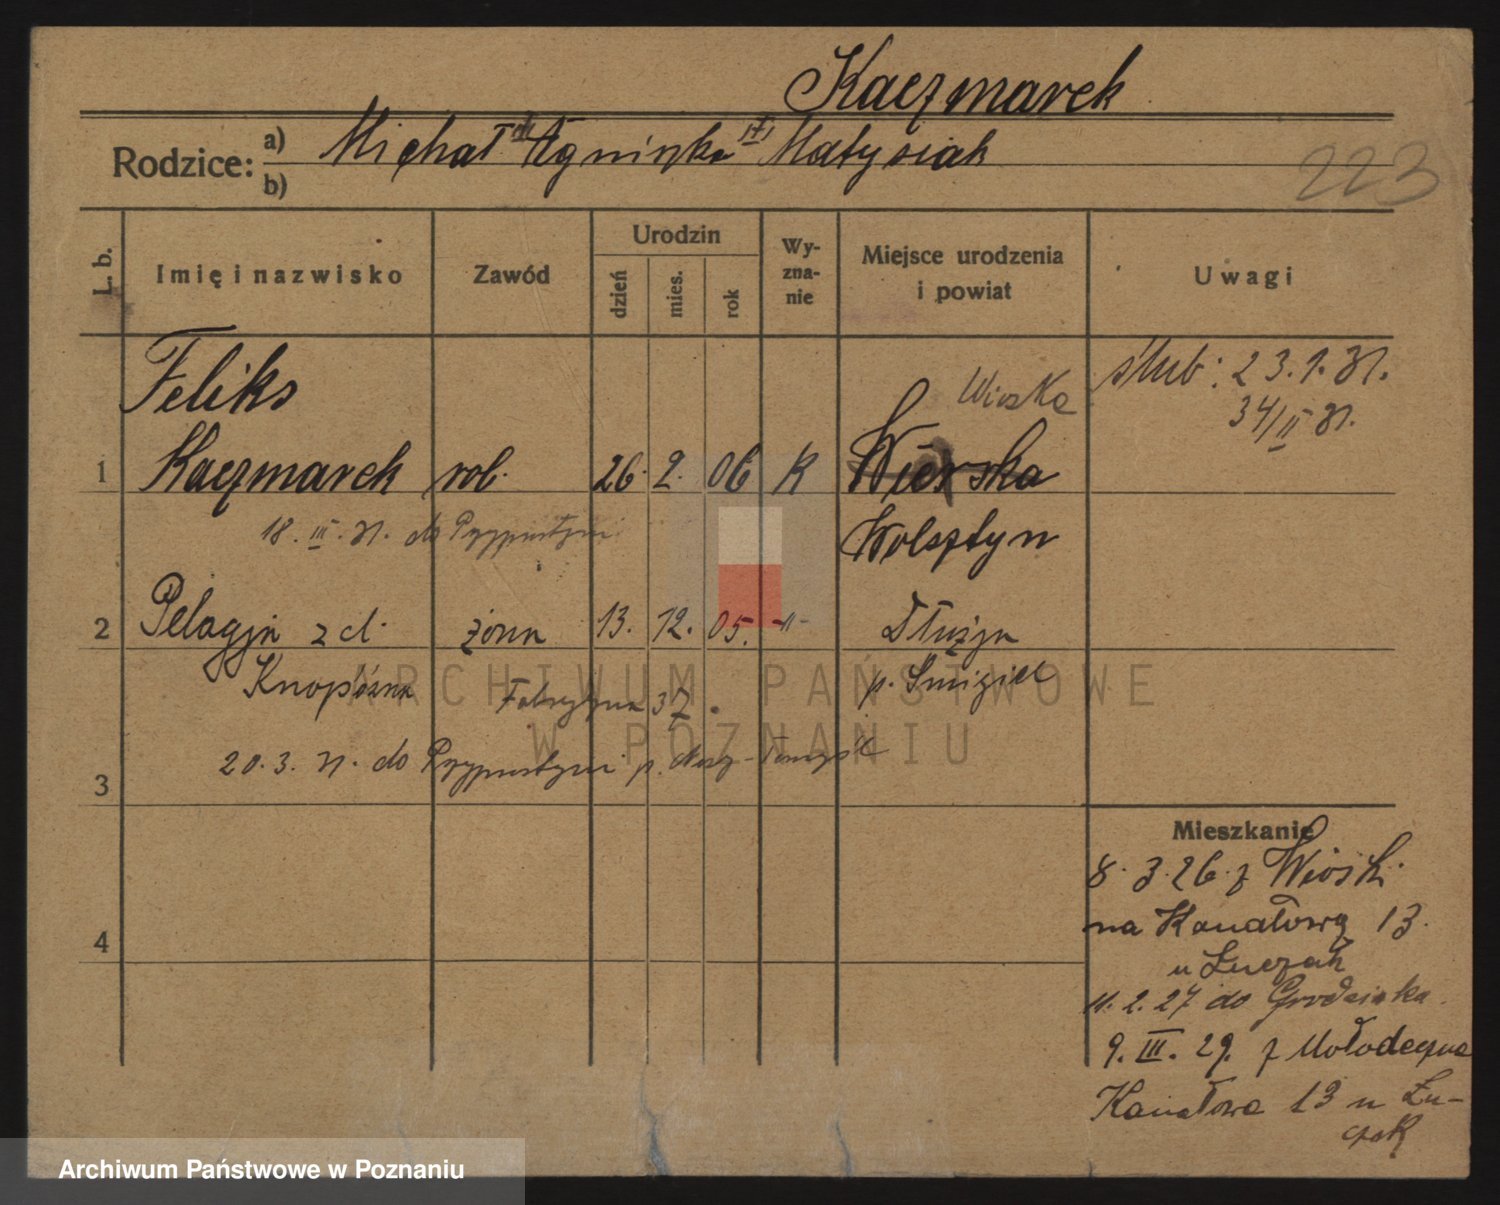 Kaczmarek
Rodzice: a) Michał Agniszka Matysiak
b)
223
L. b. Imię i nazwisko Zawód Urodzin dzień mies. rok Wyznanie Miejsce urodzenia i powiat Uwagi
Feliks
Wioska
ślub: 23.1.31.
34/II 31.
1 Kaczmarek rob. 26. 2. 06 K Wierska
18. III. 31. do Przyprostyni
Wolsztyn
2 Pelagja z d. żona 13. 12. 05. -"- Dłużyn
Knopówna
p. Śmigiel
Fabryczna 37.
ARCHIWUM PAŃSTWOWE
W POZNANIU
20. 3. 31. do Przyprostyni p. Nowy-Tomyśl
3
Mieszkanie
8. 3. 26. z Wioski
na Kanałową 13.
u Łuczak
4
11. 2. 27 do Grodziska.
9. III. 29. z Mołodeczna
Kanałowa 13 u Łu-
czak
Archiwum Państwowe w Poznaniu